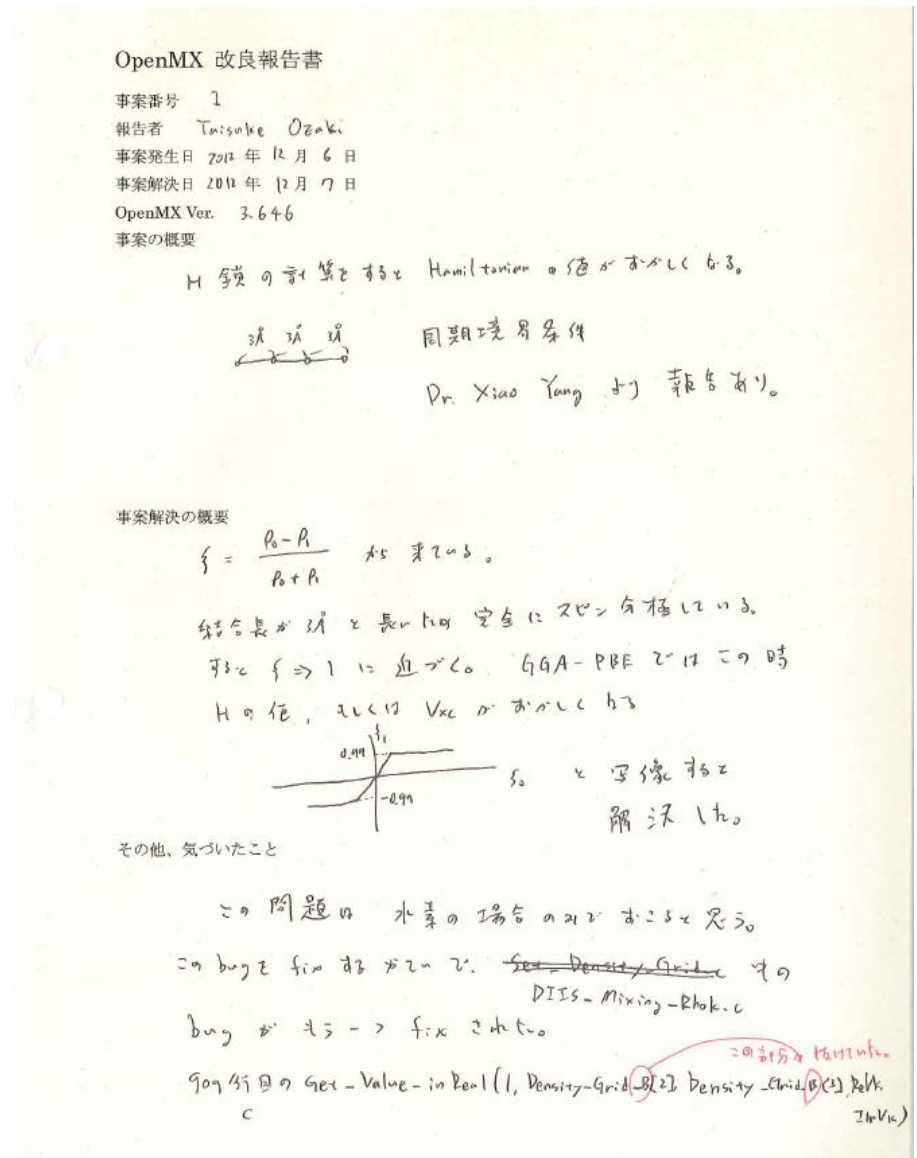 OpenMX 改良報告書
事案番号 1
報告者 Taisuke Ozaki
事案発生日 2012 年 12 月 6 日
事案解決日 2012 年 12 月 7 日
OpenMX Ver. 3.646
事案の概要
H 鎖の計算をすると Hamiltonian の値がおかしくなる。
3Å 3Å 3Å 周期境界条件
Dr. Xiao Yang より 報告あり。
事案解決の概要
ζ = (ρ0 - ρ1) / (ρ0 + ρ1) から来ている。
結合長が 3Å と長いため 完全にスピン分極している。
すると ζ ⇒ 1 に近づく。 GGA-PBE ではこの時
H の値, もしくは Vxc がおかしくなる
ζ1
0.99
ζ0 と写像すると
-0.99
解決した。
その他、気づいたこと
この問題は 水素の場合のみで おこると思う。
この bug を fix する かていで. Set_Density_Grid.c 中の
DIIS_Mixing_Rhok.c
bug がもう一つ fix された。
この部分が抜けていた。
909 行目の Get_Value_in_Real(1, Density_Grid_B[2], Density_Grid_B[3], ReVk,
ImVk)
C